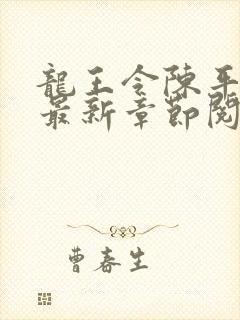 龍王令陳平
最新章節閱
曹春生